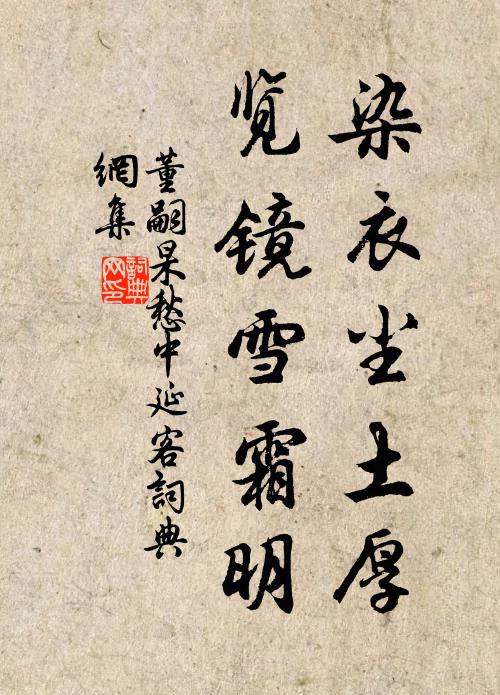 染衣尘土厚
览镜雪霜明
董嗣杲愁中延客詞典
網集
詞典網印